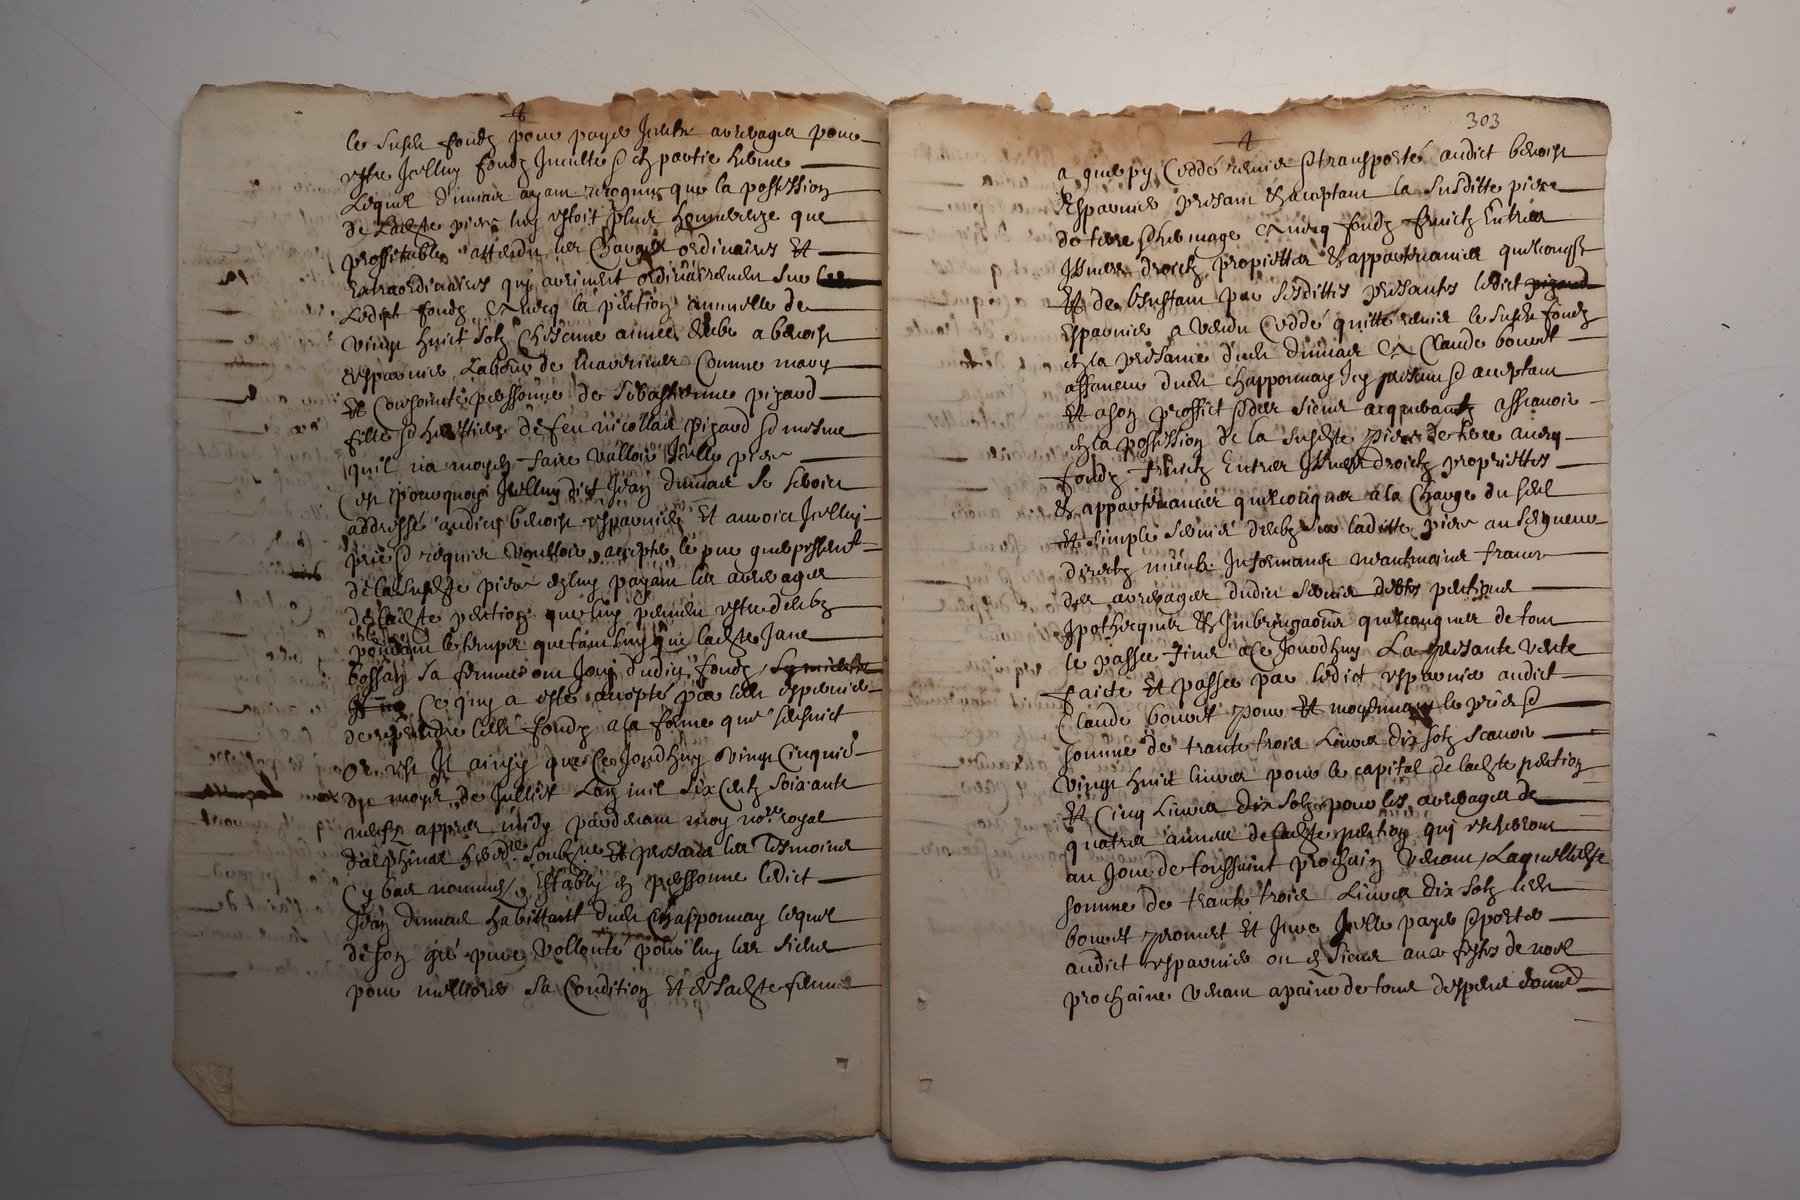 le susdit fondz pour payer arreirages pour
estre Icelluy fondz Inculte & en partie herme
Lequel dimier ayant recognu que la possession
de ladicte piece luy estoit plus que
proffitable attendu les charges ordinaires Et
Extraordinaires quy arrivent ordinairement sur
Ledict fondz Avecq la pention annuelle de
vingt huict solz Chascune année deube a benoist
esparvier Laboureur de comme mary
Et Conjointe perssonne de Sebastienne pizard
fille & heritiere de feu nicollas pizard & mesme
qu'il n'a moyen faire valloir Icelle piece
C'est pourquoy Icelluy dict Jean dimier se seroit
addressé audict benoist esparvier Et auroict Icelluy
prié & requier voulloir accepter le
de la susdicte piece en luy payant les arreirages
de ladicte pention que luy peuvent estre deubz
pendant le temps que tant luy que ladicte Jane
bossan sa femme ont Jouy dudict fondz
Ce quy a esté accepté par ledit esparvier
de reprendre ledit fondz a la forme que s'ensuict
Or est Il ainsy que Ce Jourdhuy vingt Cinquie
du moys de Juillet Lan mil six Centz soixante
appres midy pardevant moy no.re royal
dalphinal hered.re soubz.né Et presant les tesmoins
Cy bas nommés, Estably en perssonne ledict
Jean dimier habittant dudit Chapponnay lequel
de son gré pure vollonté pour luy les siens
pour melliorer sa Condition Et de sadicte femme
303
a guerpy Ceddé remis & transporté audict benoist
Esparvier presant & acceptant la susditte piece
de terre & hermage Avecq fondz fruictz Entrées
Issues droictz proprietter & appartenances quelconques
Et de lInstant par sesdittes presantes ledict pizard
Esparvier a vendu Ceddé quitté remis le susdit fondz
en la presance dudit dimier A Claude bonet
affaneur dudit Chapponnay Icy presant & acceptant
Et a son proffict & des siens acquerantz assçavoir
en la possession de la susdicte piece de terre avecq
fondz fruictz Entrées Issues droictz proprietter
& appartenances quelconques a la Charge du seul
Et simple servis deubz sur laditte piece au seigneur
directz mieulx Informant neantmoins francs
des arreirages dudict servis debtes pentions
Ypothecques & quelconques de tout
le passé Jusques a Ce Jourdhuy La presante vente
faicte Et passée par ledict esparvier audict
Claude bonet pour Et moyennant le prix &
somme de trante trois Livres dix solz scavoir
vingt huict livres pour le capital de ladicte pention
Et Cinq Livres dix solz pour les arreirages de
quatre années de ladicte pention quy escherront
au Jour de toussaint prochain venant, Laquelle dicte
somme de trante trois Livres dix solz ledit
bonet promet Et Jure Icelle payer & porter
audict esparvier ou & siens aux festes de noel
prochaine venant a paine de tous despens